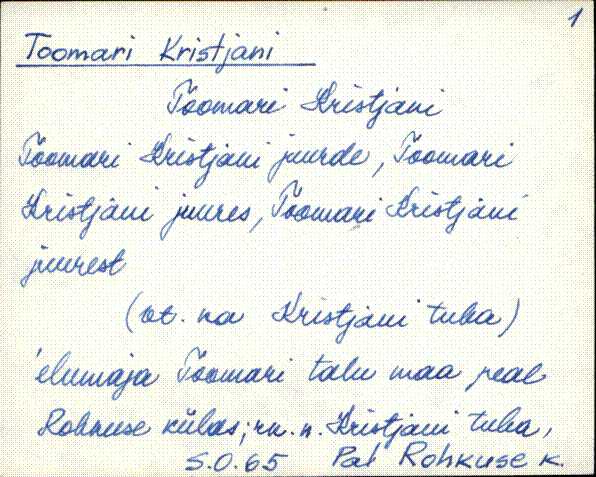 1
Toomari Kristjani
Toomari Kristjani
Toomari Kristjani juurde, Toomari
Kristjani juures, Toomari Kristjani
juurest
(vt. ka Kristjani tuba)
elumaja Toomari talu maa peal
Rohkuse külas; rn. n. Kristjani tuba,
S.O. 65 Pal Rohkuse k.